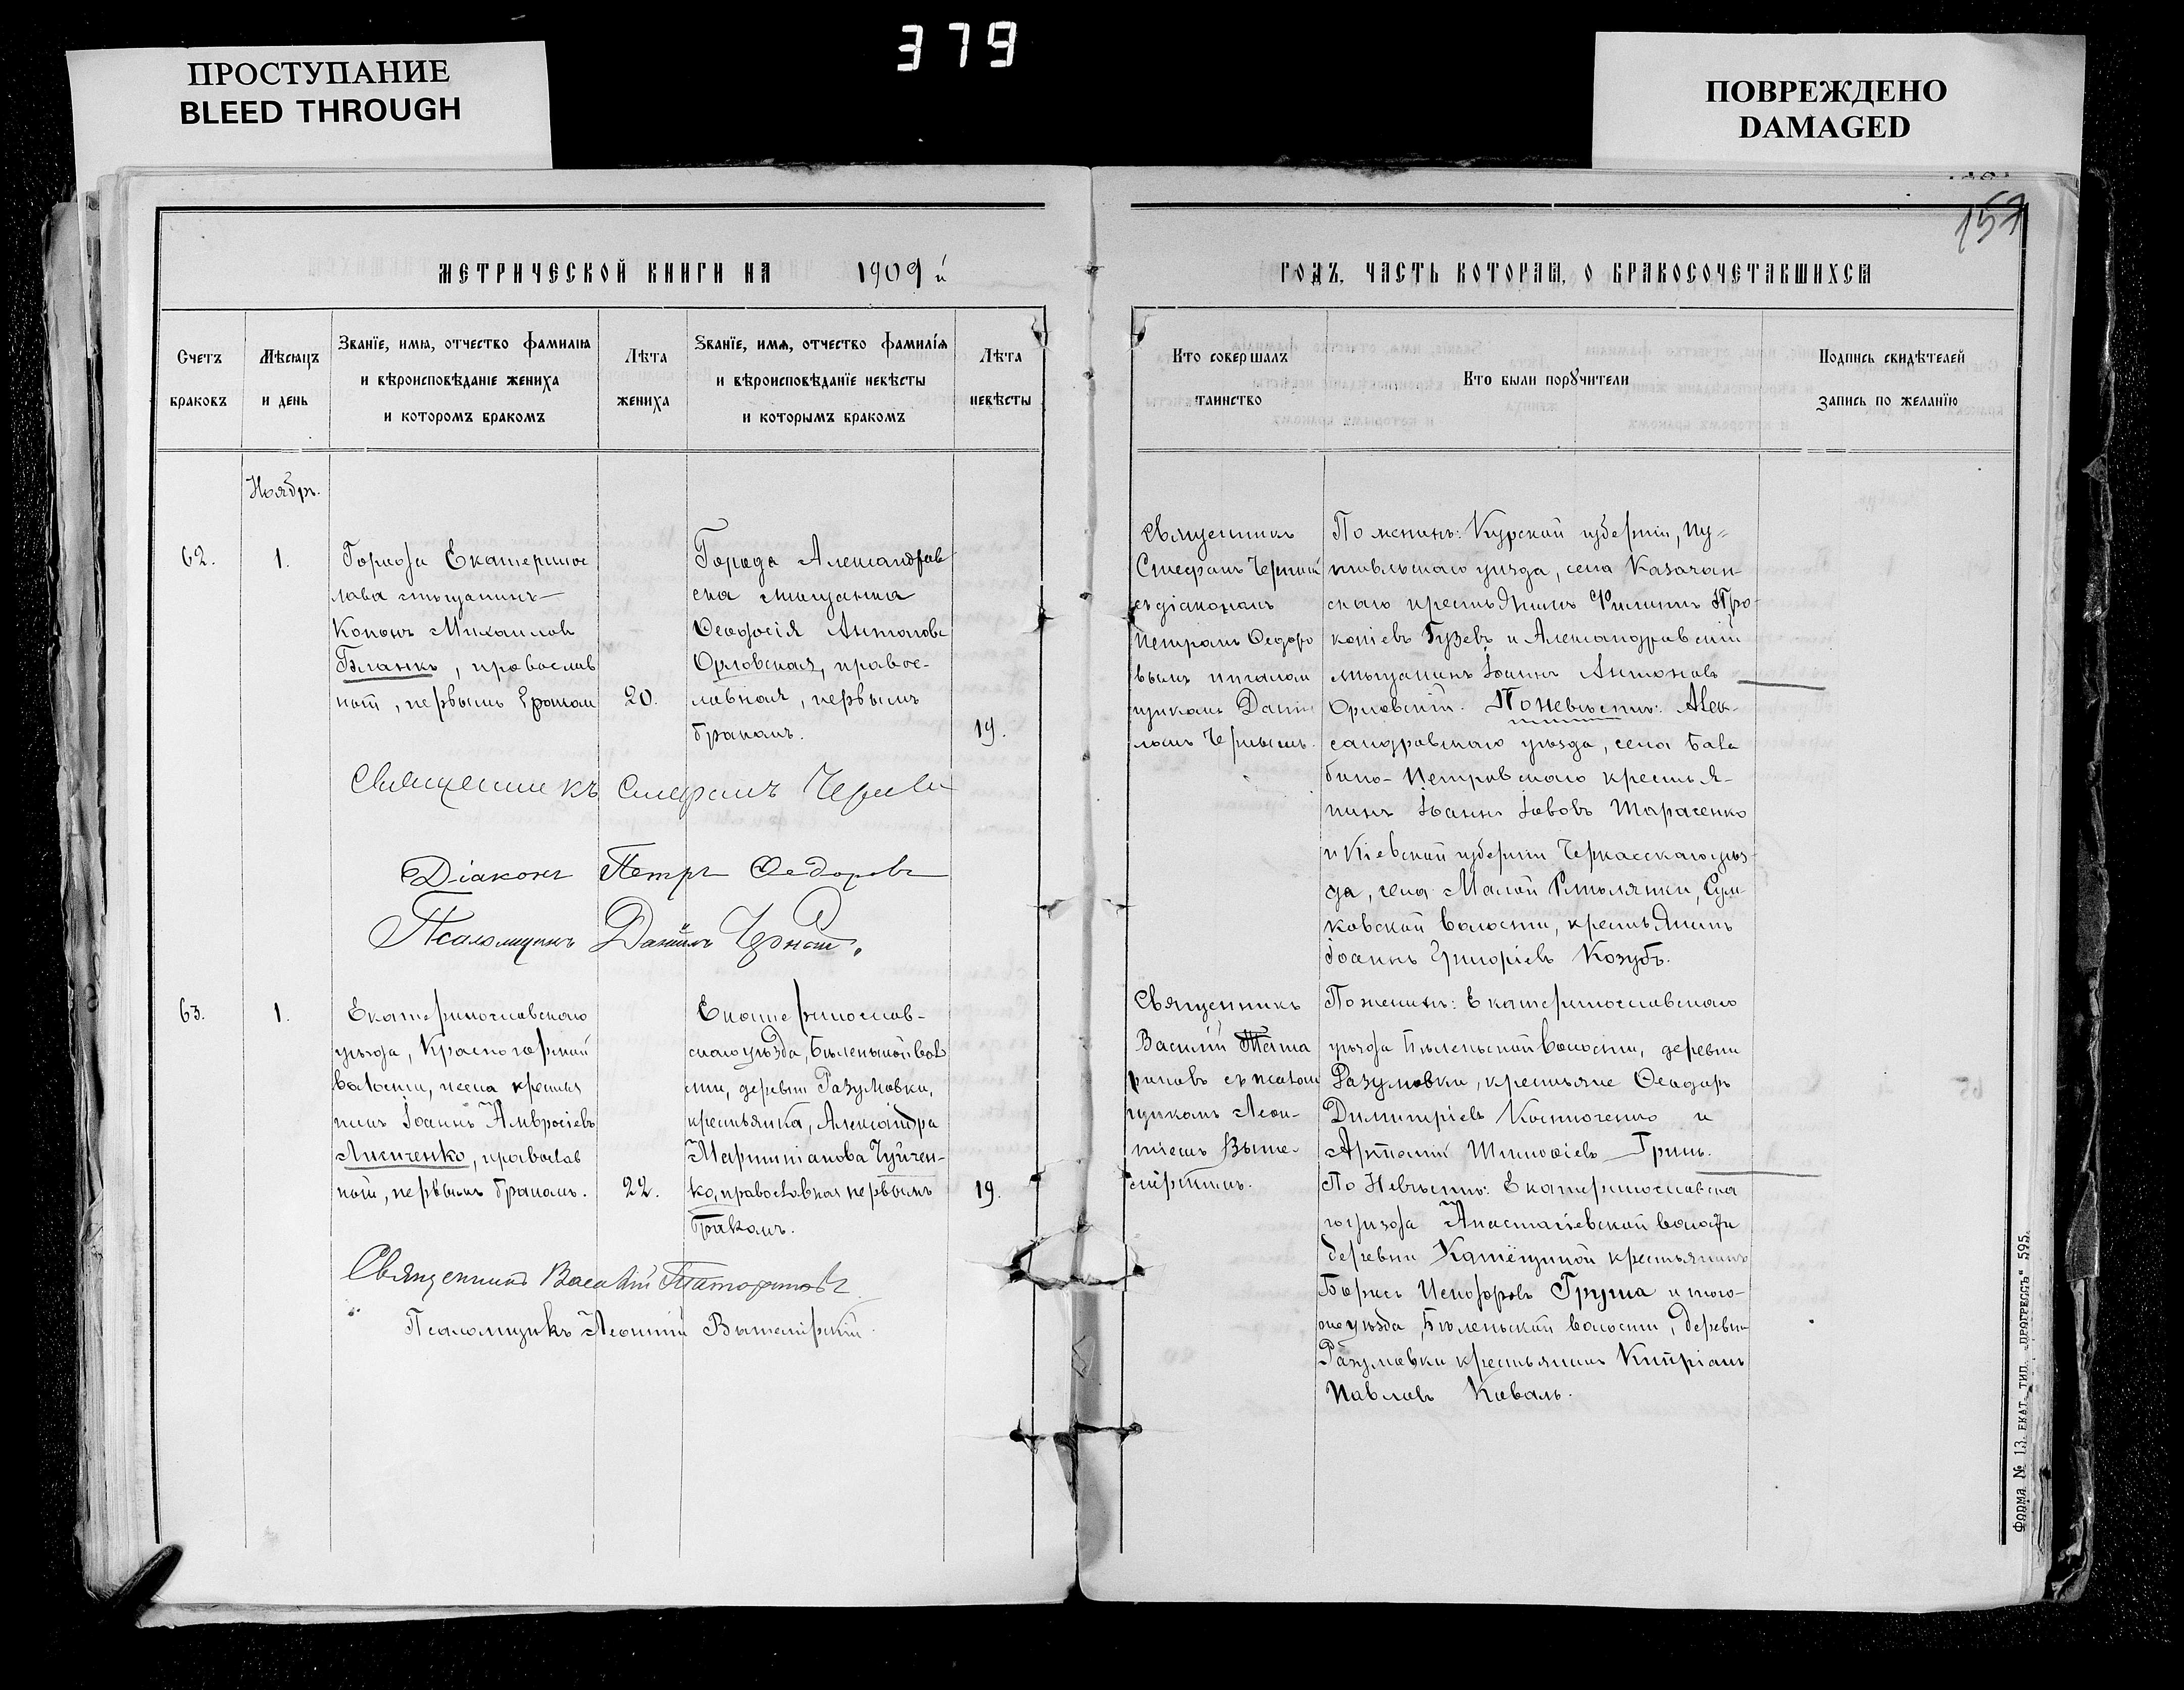 379
ПРОСТУПАНИЕ
BLEED THROUGH
ПОВРЕЖДЕНО
DAMAGED
157
МЕТРИЧЕСКОЙ КНИГИ НА 1909 й
ГОДЪ, ЧАСТЬ КОТОРАЯ, О БРАКОСОЧЕТАВШИХСЯ
Счетъ
браковъ
Мѣсяцъ
и день
Званїе, имя, отчество фамилїя
и вѣроисповѣданїе жениха
и которомъ бракомъ
Лѣта
жениха
Званїе, имя, отчество фамилїя
и вѣроисповѣданїе невѣсты
и которымъ бракомъ
Лѣта
невѣсты
Кто совершалъ
таинство
Кто были порꙋчители
Подпись свидѣтелей
запись по желанїю
Ноябрь.
62.
1.
Города Екатеринос
лава мѣщанинъ
Кононъ Михаиловъ
Бланкъ, православ
ный, первымъ бракомъ
20.
Города Александров
ска мѣщанка
Ѳеодосія Антонова
Орловская, правос-
лавная, первымъ
бракомъ.
19.
Священникъ
Стефанъ Черный
съ діакономъ
Петромъ Ѳедоро
вымъ и псалом
щикомъ Дани
ломъ
По женихѣ: Курской губерніи, Пу-
тивльскаго уѣзда, села Казачан-
скаго крестьянинъ Филиппъ Про-
копіевъ Гузевъ и Александровскій
мѣщанинъ Іоаннъ Антоновъ
Орловскій. По невѣстѣ: Алек-
сандровскаго уѣзда, села Бала
бино-Петровскаго крестья-
нинъ Іоаннъ Іововъ Тарасенко
и Кіевской губерніи Черкасскаго уѣз-
да, села Малой Смѣлянки,
ковской волости, крестьянинъ
Іоаннъ Григоріевъ Козубъ.
Священникъ Стефанъ
Діаконъ Петръ Ѳедоровъ
Псаломщикъ Даніилъ
63.
1.
Екатеринославскаго
уѣзда, Красногорской
волости, крестья
нинъ Іоаннъ Амвросіевъ
Лисиченко, православ
ный, первымъ бракомъ.
22.
Екатеринослав-
скаго уѣзда, Бѣленькой вол
сти, деревни Разумовки,
крестьянка, Александра
Мартиніанова Чуйчен-
ко, православная первымъ
бракомъ.
19.
Священникъ
Василій Тата
риновъ съ псалом
щикомъ Леон-
тіемъ Выше-
мірскимъ.
По женихѣ: Екатеринославскаго
уѣзда Бѣленьской волости, деревни
Разумовки, крестьяне Ѳеодоръ
Димитріевъ Костюченко и
Артемій Тимоѳіевъ Гринь.
По Невѣстѣ: Екатеринославска
го уѣзда Анастасіевской волости
деревни крестьянинъ
Борисъ Исидоровъ Груша и того-
же уѣзда, Бѣленьской волости, деревни
Разумовки крестьянинъ Кипріанъ
Павловъ Коваль.
Священникъ Василій Татариновъ
Псаломщикъ Леонтій Вышемірскій.
Форма № 13. ЕКАТ. ТИП. „ПРОГРЕССЪ" 595.